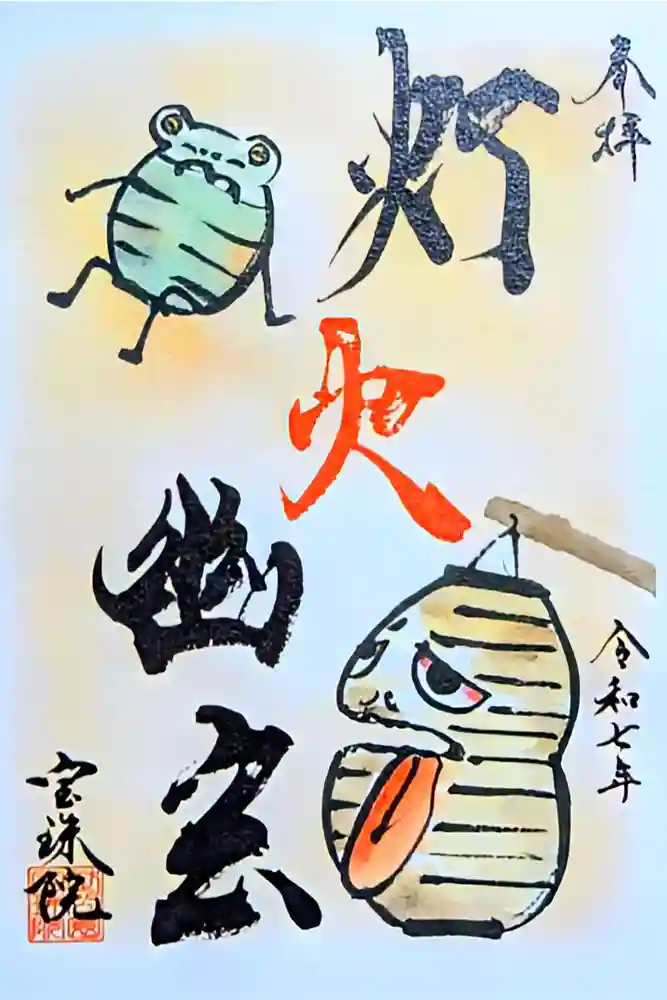 奉拝
灯火
幽玄
令和七年
宝珠院